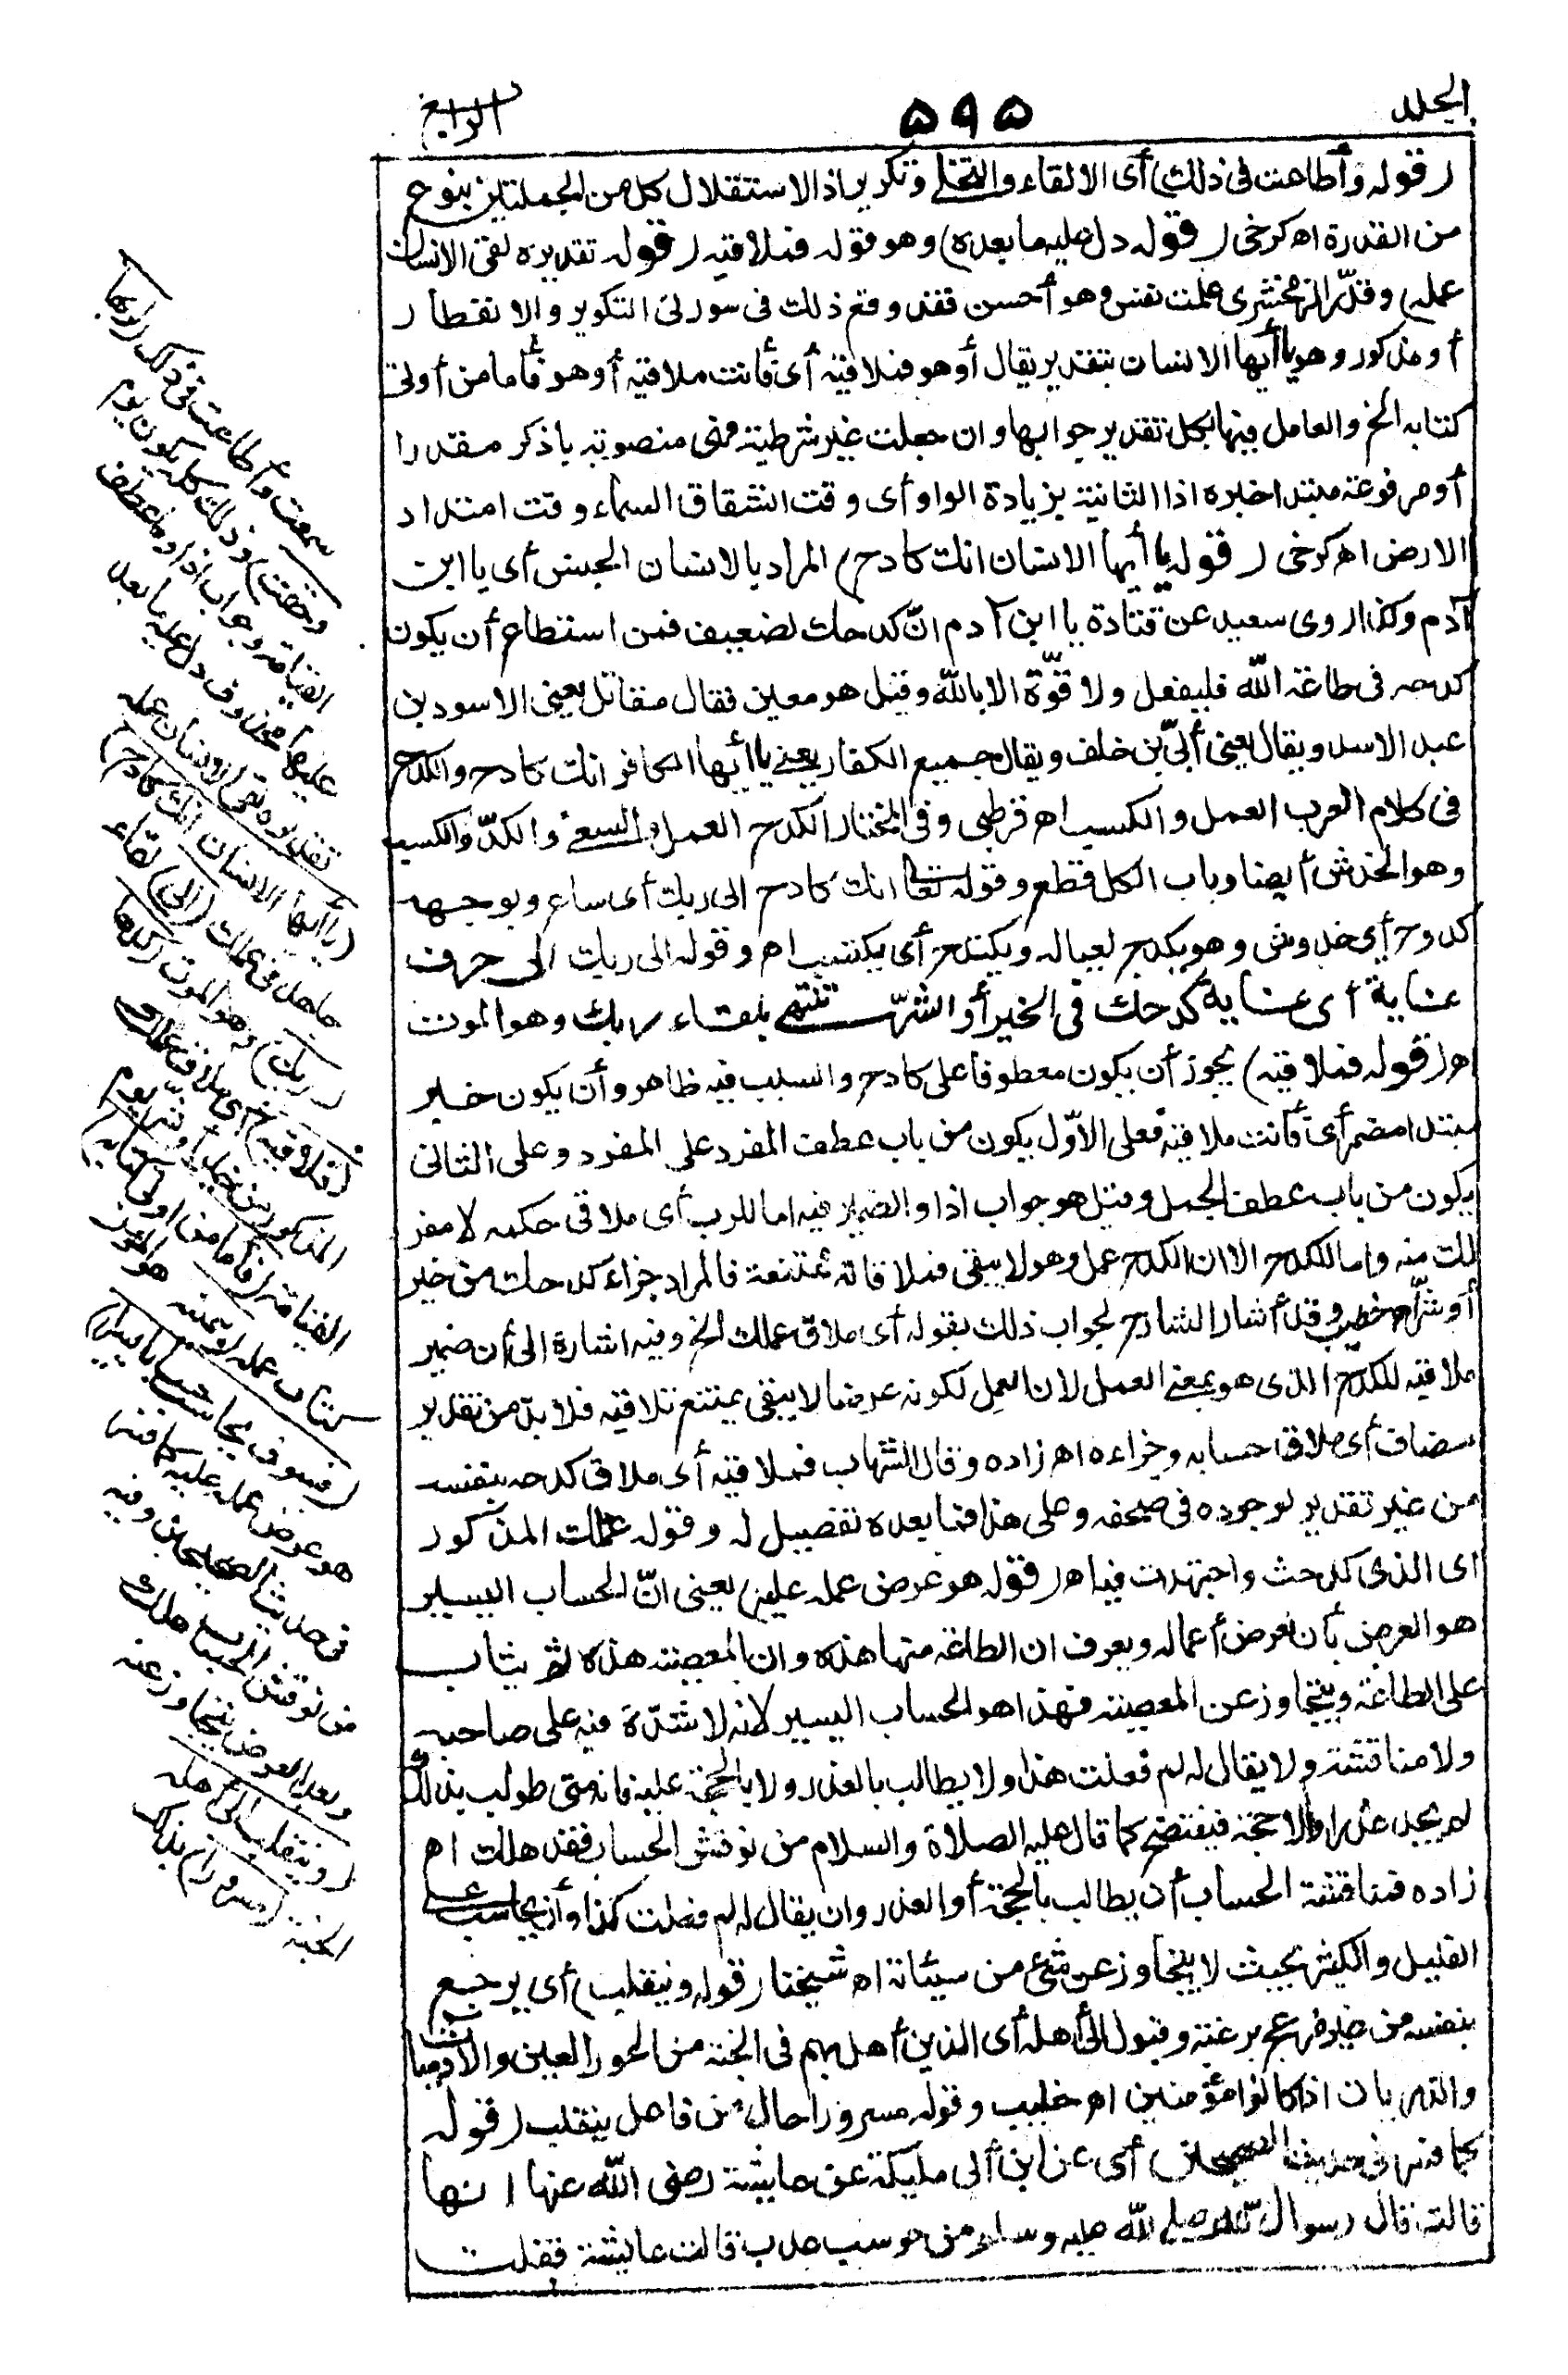 الجلد
۵۹۵
الرابع
(قوله وأطاعت في ذلك) أى الالقاء والتخلى وتكرير اذا لاستقلال كل من الجملتين بنوع
من القدرة اه كرخى (قوله دل عليه ما بعده) وهو قوله فملاقيه (قوله تقديره لقى الانسان
عمله) وقدّر الزمخشرى علمت نفس وهو أحسن فقد وقع ذلك فى سورتى التكوير والانفطار
أو مذكور وهو يا أيها الانسان بتقدير يقال أو هو فملاقيه أى فأنت ملاقيه أو هو فأما من أوتى
كتابه الخ والعامل فيها بكل تقدير جوابها وان جعلت غير شرطية فهى منصوبة باذكر مقدرا
أو مرفوعة مبتدا خبره اذا الثانية بزيادة الواو أى وقت انشقاق السماء وقت امتداد
الارض اه كرخى (قوله يا أيها الانسان انك كادح) المراد بالانسان الجنس أى يا ابن
آدم وكذا روى سعيد عن قتادة يا ابن آدم انّ كدحك لضعيف فمن استطاع أن يكون
كدحه فى طاعة الله فليفعل ولا قوّة الا بالله وقيل هو معين فقال مقاتل يعنى الاسود بن
عبد الاسد ويقال يعنى أبىّ بن خلف ويقال جميع الكفار يعنى يا أيها الكافر انك كادح والكدح
فى كلام العرب العمل والكسب اه قرطبى وفى المختار الكدح العمل والسعى والكدّ والكسب
وهو الخدش أيضا وباب الكل قطع وقوله تعالى انك كادح الى ربك أى ساع وبوجهه
كدوح أى خدوش وهو يكدح لعياله ويكتدح أى يكتسب اه وقوله الى ربك الى حرف
غاية أى غاية كدحك فى الخير أو الشرّ تنتهى بلقاء ربك وهو الموت
اه (قوله فملاقيه) يجوز أن يكون معطوفا على كادح والسبب فيه ظاهر وأن يكون خبر
مبتدا مضمر أى فأنت ملاقيه فعلى الاوّل يكون من باب عطف المفرد على المفرد وعلى الثانى
يكون من باب عطف الجمل وقيل هو جواب اذا والضمير فيه اما للرب أى ملاقى حكمه لا مفر
لك منه واما للكدح الا ان الكدح عمل وهو لا يبقى فملاقاته ممتنعة فالمراد جزاء كدحك من خير
أو شرّ اه خطيب وقد أشار الشارح لجواب ذلك بقوله أى ملاق عملك الخ وفيه اشارة الى أن ضمير
ملاقيه للكدح الذى هو بمعنى العمل لان العمل لكونه عرضا لا يبقى يمتنع تلاقيه فلا بدّ من تقدير
مضاف أى ملاق حسابه وجزاءه اه زاده وقال الشهاب فملاقيه أى ملاقى كدحه بنفسه
من غير تقدير لوجوده فى صحفه وعلى هذا فما بعده تفصيل له وقوله عملك المذكور
اى الذى كدحت واجتهدت فيه اه (قوله هو عرض عمله عليه) يعنى انّ الحساب اليسير
هو العرض بأن تعرض أعماله ويعرف ان الطاعة منها هذه وان المعصية هذه ثم يثاب
على الطاعة ويتجاوز عن المعصية فهذا هو الحساب اليسير لانه لا شدّة فيه على صاحبه
ولا مناقشة ولا يقال له لم فعلت هذا ولا يطالب بالعذر ولا بالحجة عليه فانه متى طولب بذلك
لم يجد عذرا ولا حجة فيفتضح كما قال عليه الصلاة والسلام من نوقش الحساب فقد هلك اه
زاده فمناقشة الحساب أن يطالب بالحجة أو العذر وان يقال له لم فعلت كذا وأن يحاسب على
القليل والكثير بحيث لا يتجاوز عن شئ من سيئاته اه شيخنا (قوله وينقلب) أى يرجع
بنفسه من غير مزعج برغبة وقبول الى أهله أى الذين أهل بهم فى الجنة من الحور العين والآدميات
والذريات اذا كانوا مؤمنين اه خطيب وقوله مسرورا حال من فاعل ينقلب (قوله
كما فسر فى حديث الصحيحين) أى عن ابن أبى مليكة عن عايشة رضى الله عنها انها
قالت قال رسول الله صلى الله عليه وسلم من حوسب عذب قالت عايشة فقلت
سمعت وأطاعت فى ذلك (لربها
وحقت) وذلك كله يكون يوم
القيامة وجواب اذا وما عطف
عليها محذوف دل عليه ما بعده
تقديره لقى الانسان عمله
(يا أيها الانسان انك كادح)
جاهد فى عملك (الى) لقاء
(ربك) وهو الموت (كدحا
فملاقيه) أى ملاق عملك
المذكور من خير أو شر يوم
القيامة (فأما من أوتى كتابه)
كتاب عمله (بيمينه) هو المؤمن
(فسوف يحاسب حسابا يسيرا)
هو عرض عمله عليه كما فسر
فى حديث الصحيحين وفيه
من نوقش الحساب هلك
وبعد العرض يتجاوز عنه
(وينقلب الى أهله)
الجنة (مسرورا) بذلك